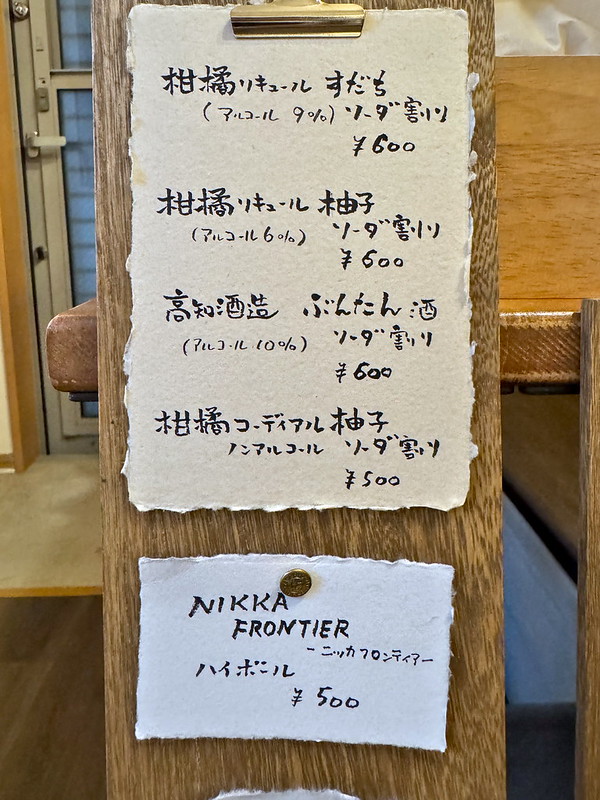 柑橘リキュール すだち
(アルコール 9%) ソーダ割り
¥600
柑橘リキュール 柚子
(アルコール 6%) ソーダ割り
¥600
高知酒造 ぶんたん酒
ソーダ割り
(アルコール 10%)
¥600
柑橘コーディアル 柚子
ノンアルコール ソーダ割り
¥500
NIKKA
FRONTIER
-ニッカフロンティアー
ハイボール
¥500